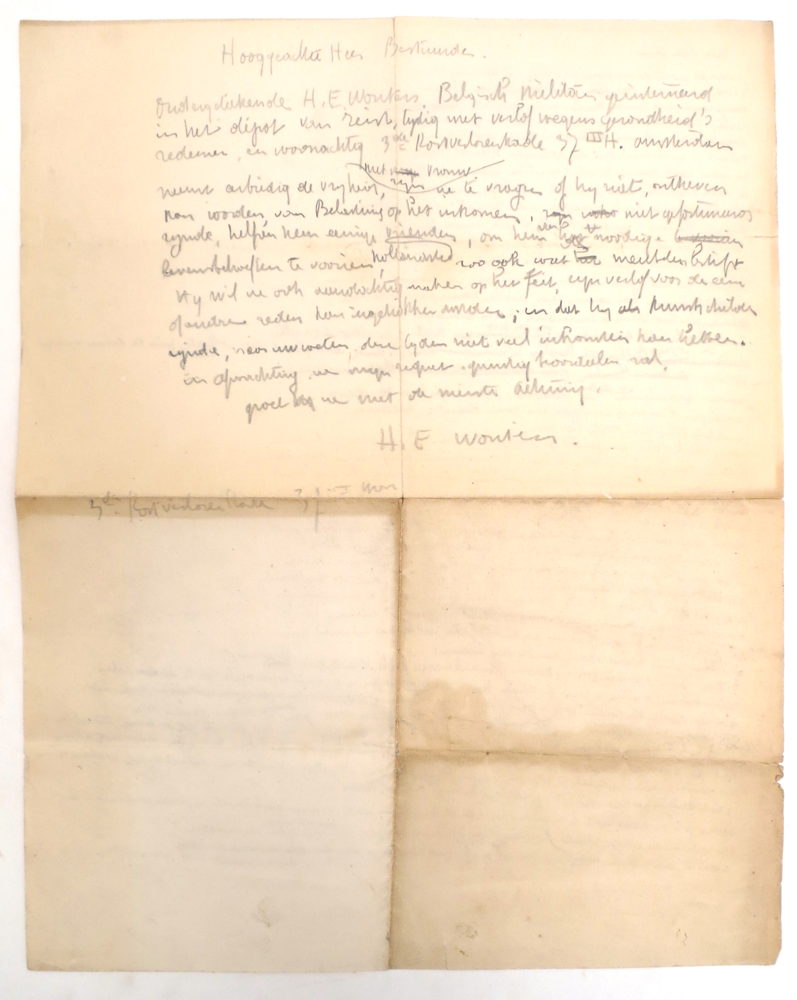 Hooggeachte Heer Bestuurder.
Ondergeteekende H. E. Wouters. Belgisch Militair geinterneerd
in het dépot van Zeist, tydig met verlof wegens gezondheid's
redenen, en woonachtig 3de Kostverlorenkade 37 III H. Amsterdam
met zyn vrouw
neemt eerbiedig de vryheid, U te vragen of hy niet, ontheven
kan worden, van Belasting op het inkomen, niet gefortuneerd
zynde, helpen hem eenige vrienden, om hem het noodige
hollandsche
levensbehoeften te voorzien, zoo ook wat
Hy wil U ook aandachtig maken op het feit, zyn verlof voor de een
of andere reden kan ingetrokken worden, en dat hy als Kunstschilder
zynde, zooals U weten, deze tyden niet veel inkomsten kan hebben.
in afwachting U myn request gunstig beoordeelen zal,
groet U met de meeste achting.
H. E Wouters.
3de Kostverloren Kade 37 III